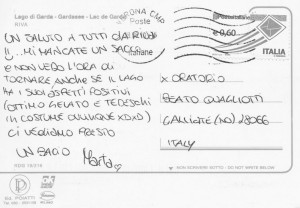 Lago di Garda - Gardasee - Lac de Garde
RIVA
UN SALUTO A TUTTI DA RIVA
!! ...MI MANCATE UN SACCO
E NON VEDO L'ORA DI
TORNARE ANCHE SE IL LAGO
HA I SUOI ASPETTI POSITIVI
(OTTIMO GELATO E TEDESCHI
IN COSTUME OVUNQUE XDXD)
CI VEDIAMO PRESTO
UN BACIO
Marta
CMP
Poste
Italiane
€ 0,60
ITALIA
X ORATORIO
BEATO QUAGLIOTTI
GALLIATE (NO) 28066
ITALY
NON SCRIVERE SOTTO - DO NOT WRITE BELOW